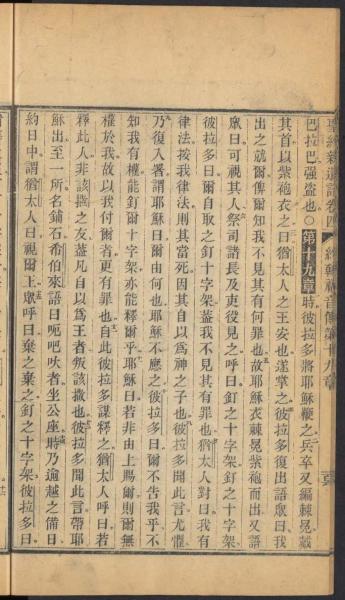 約翰福音傳第十九章
巴拉巴强盜也○第十九章時彼拉多將耶穌鞭之兵卒又編棘冕戴
其首以紫袍衣之曰猶太人之王安也遂掌之彼拉多復出語眾曰我
出之就爾俾爾知我不見其有何罪也故耶穌衣棘冕紫袍而出又語
眾曰可視其人祭司諸長及吏役見之呼曰釘之十字架釘之十字架
彼拉多曰爾自取之釘十字架蓋我不見其有罪也猶太人對曰我有
律法按我律法則其當死因其自以爲神之子也彼拉多聞此言尤懼
乃復入署謂耶穌曰爾由何也耶穌不應之彼拉多曰爾不告我乎不
知我有權能釘爾十字架亦能釋爾乎耶穌曰若非由上賜爾則爾無
權於我故以我付爾者更有罪也自此彼拉多謀釋之猶太人呼曰若
釋此人非該撒之友蓋凡自以爲王者叛該撒也彼拉多聞此言帶耶
穌出至一所名鋪石希伯來語曰呃吧吠者坐公座時乃逾越之備日
約日中謂猶太人曰視爾王眾呼曰棄之棄之釘之十字架彼拉多曰